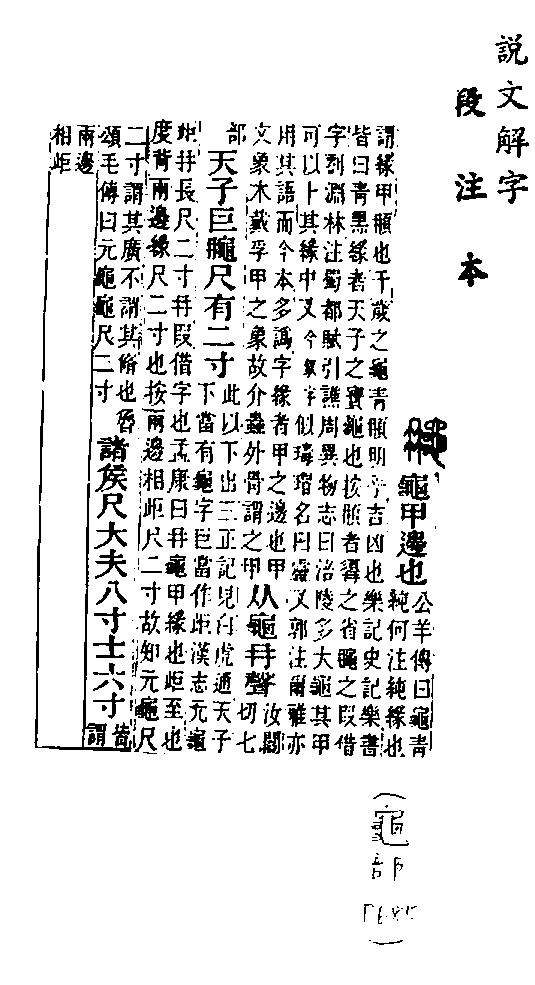 說文解字
段注本
龜甲邊也公羊傳曰龜青
純何注純緣也
謂緣甲𩑺也千歲之龜青𩑺明于吉凶也樂記史記樂書
皆曰青黑緣者天子之寶龜也按𩑺者之省龜之叚借
字劉淵林注蜀都賦引譙周異物志曰涪陵多大龜其甲
可以卜其緣中叉今字似瑇瑁名曰靈叉郭注爾雅亦
用其語而今本多譌字緣者甲之邊也甲
文象木戴孚甲之象故介蟲外骨謂之甲从龜冄聲汝閻切七
部天子巨龜尺有二寸此以下出三正記見白虎通天子
下當有龜字巨當作歫漢志元龜
岠冄長尺二寸冄叚借字也孟康曰冄龜甲緣也岠至也
度背兩邊緣尺二寸也按兩邊相歫尺二寸故知元龜尺
二寸謂其廣不謂其脩也魯
頌毛傳曰元龜龜尺二寸諸侯尺大夫八寸士六寸皆謂
兩邊
相歫
(龜部 P685)